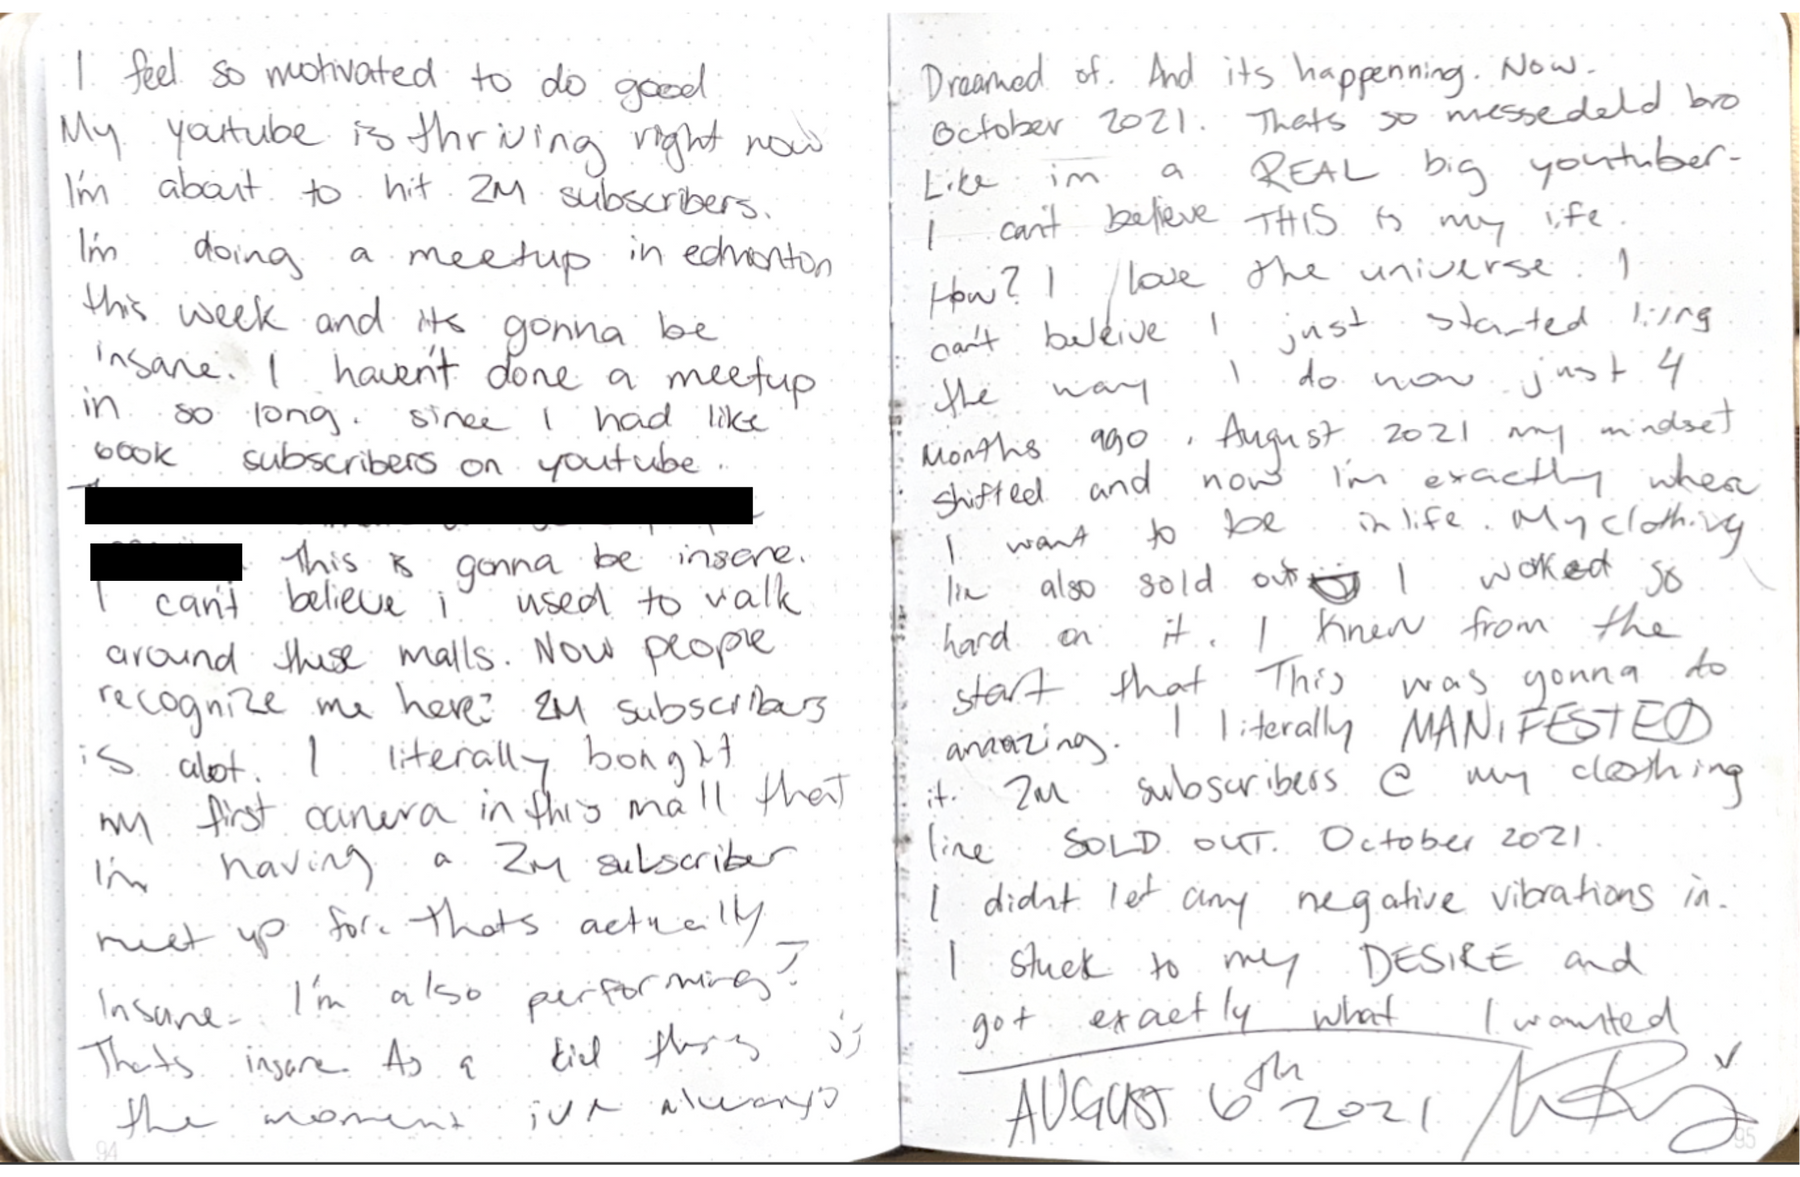 I feel so motivated to do good
My youtube is thriving right now
I'm about to hit 2M subscribers.
I'm doing a meetup in edmonton
this week and its gonna be
insane. I haven't done a meetup
in so long. since I had like
600k subscribers on youtube.
This is gonna be insane.
I can't believe i used to walk
around these malls. Now people
recognize me here? 2M subscribers
is alot. I literally bought
my first camera in this mall that
I'm having a 2M subscriber
meet up for. thats actually
Insane. I'm also performing?
Thats insane. As a kid this is
the moment ive always
94
Dreamed of. And its happenning. Now.
October 2021. Thats so messed bro
Like im a REAL big youtuber.
I can't believe THIS is my life.
How? I love the universe. I
can't beleive I just started living
the way I do now just 4
Months ago. August 2021 my mindset
shifted and now I'm exactly where
I want to be in life. My clothing
lin also sold out I worked so
hard on it. I knew from the
start that This was gonna do
amazing. I literally MANIFESTED
it. 2M subscribers @ my clothing
line SOLD OUT. October 2021.
I didnt let any negative vibrations in.
I stuck to my DESIRE and
got exactly what I wanted
AUGUST 6th 2021
95